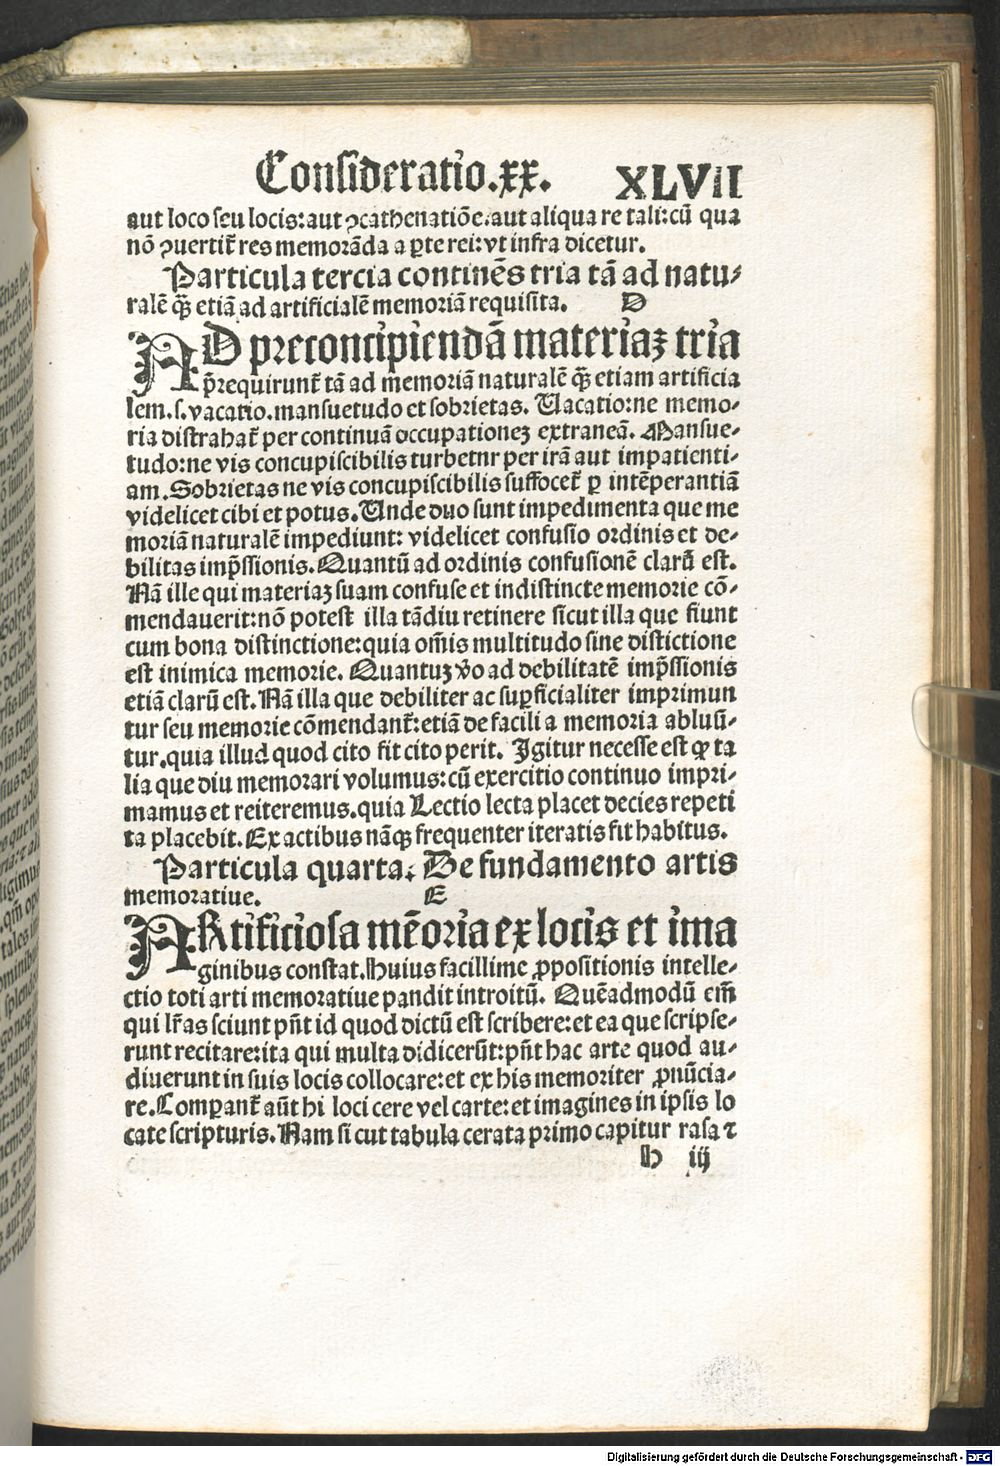 Consideratio.xx. XLVII
aut loco seu locis:aut ꝯcathenatiōe.aut aliqua re tali:cū qua
nō ꝯuertit᷑ res memorāda a ꝑte rei:vt infra dicetur.
Particula tercia continēs tria tā ad natu⸗
ralē qꝫ̄ etiā ad artificialē memoriā requisita. D
AD preconcipiendā materiaꝫ tria
p̄requirunt᷑ tā ad memoriā naturalē qꝫ̄ etiam artificia
lem.s.vacatio.mansuetudo et sobrietas. Uacatio:ne memo⸗
ria distrahat᷑ per continuā occupationeꝫ extraneā. Mansue⸗
tudo:ne vis concupiscibilis turbetnr per irā aut impatienti⸗
am.Sobrietas ne vis concupiscibilis suffocet᷑ ꝑ intēperantiā
videlicet cibi et potus.Unde duo sunt impedimenta que me
moriā naturalē impediunt: videlicet confusio ordinis et de⸗
bilitas imp̄ssionis.Quantū ad ordinis confusionē clarū est.
Nā ille qui materiaꝫ suam confuse et indistincte memorie cō⸗
mendauerit:nō potest illa tādiu retinere sicut illa que fiunt
cum bona distinctione:quia om̄is multitudo sine distictione
est inimica memorie. Quantuꝫ v̓o ad debilitatē imp̄ssionis
etiā clarū est.Nā illa que debiliter ac suꝑficialiter imprimun
tur seu memorie cōmendant᷑:etiā de facili a memoria abluū⸗
tur.quia illud quod cito fit cito perit. Igitur necesse est ꝙ ta
lia que diu memorari volumus:cū exercitio continuo impri⸗
mamus et reiteremus.quia Lectio lecta placet decies repeti
ta placebit.Ex actibus nāqꝫ frequenter iteratis fit habitus.
Particula quarta. De fundamento artis
memoratiue. E
ARtificiosa mēoria ex locis et ima
ginibus constat.Huius facillime ꝓpositionis intelle⸗
ctio toti arti memoratiue pandit introitū. Quēadmodū em̄
qui lr̄as sciunt pn̄t id quod dictū est scribere:et ea que scripse⸗
runt recitare:ita qui multa didicerūt:pn̄t hac arte quod au⸗
diuerunt in suis locis collocare:et ex his memoriter ꝓnūcia⸗
re.Comꝑant᷑ aūt hi loci cere vel carte:et imagines in ipsis lo
cate scripturis.Nam si cut tabula cerata primo capitur rasa ⁊
h iij
Digitalisierung gefördert durch die Deutsche Forschungsgemeinschaft - DFG